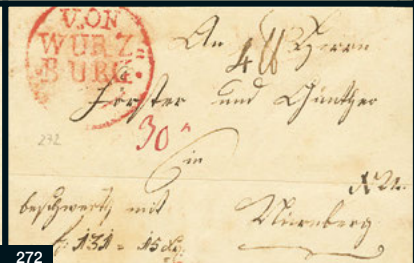 V.ON
WÜRZ
BURG
An Herrn
Forster und Günther
30
232
in
Nürnberg
beschwert mit
f: 131 = 15
272